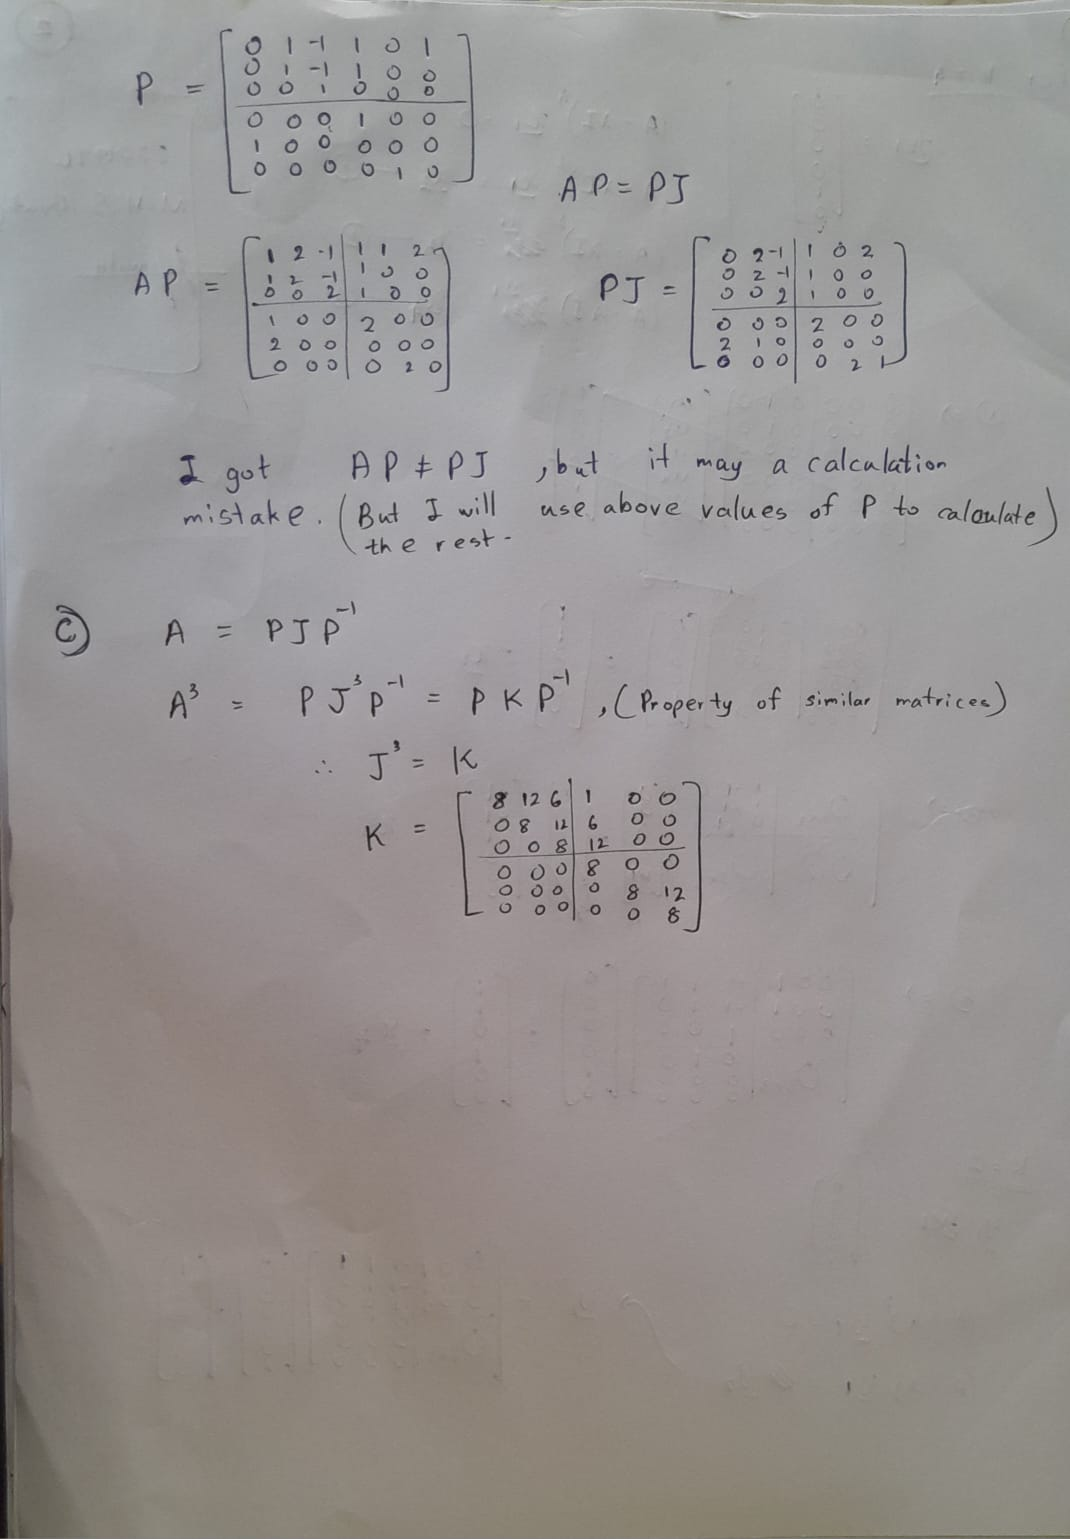 P = [ 0 1 -1 1 0 1
0 1 -1 1 0 0
0 0 1 0 0 0
0 0 0 1 0 0
1 0 0 0 0 0
0 0 0 0 1 0 ]
AP = PJ
AP = [ 1 2 -1 | 1 1 2
1 2 -1 | 1 0 0
0 0 2 | 1 0 0
1 0 0 | 2 0 0
2 0 0 | 0 0 0
0 0 0 | 0 2 0 ]
PJ = [ 0 2 -1 | 1 0 2
0 2 -1 | 1 0 0
0 0 2 | 1 0 0
0 0 0 | 2 0 0
2 1 0 | 0 0 0
0 0 0 | 0 2 1 ]
I got AP ≠ PJ , but it may a calculation
mistake. (But I will use above values of P to calculate)
the rest.
c) A = PJP⁻¹
A³ = PJ³P⁻¹ = PKP⁻¹ , (Property of similar matrices)
∴ J³ = K
K = [ 8 12 6 | 1 0 0
0 8 12 | 6 0 0
0 0 8 | 12 0 0
0 0 0 | 8 0 0
0 0 0 | 0 8 12
0 0 0 | 0 0 8 ]